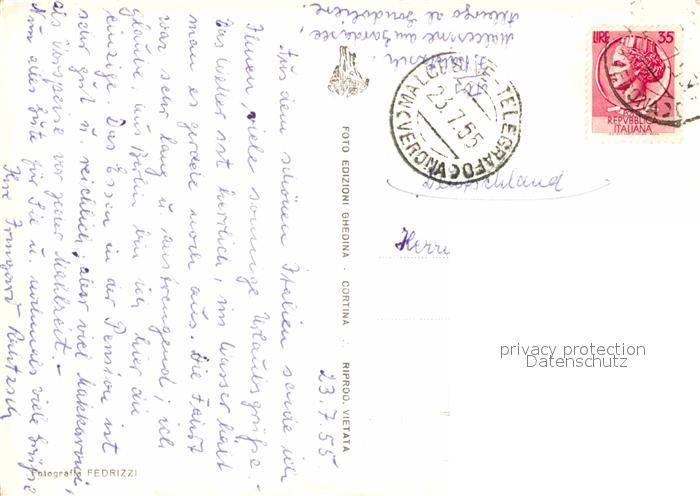 23.7.55
Aus dem schönen Italien sende ich
Ihnen viele sonnige Urlaubsgrüße. -
Das Wetter ist herrlich, im Wasser hält
man es gerade noch aus. Die Fahrt
war sehr lang u. anstrengend; ich
glaube, aus Berlin bin ich hier die
einzige. Das Essen in der Pension ist
sehr gut u. reichlich, aber viel Makkaroni,
als Vorspeise vor jeder Mahlzeit. -
Nun alles Gute für Sie u. nochmals viele Grüße
Ihre Irmgard
Fotografia FEDRIZZI
FOTO EDIZIONI GHEDINA - CORTINA - RIPROD. VIETATA
Malcesine am Gardasee
Albergo al Gondoliere
MALCESINE - TELEGRAFO
(VERONA)
23.7.55
LIRE 35
REPVBBLICA
ITALIANA
Deutschland
Herrn
privacy protection
Datenschutz